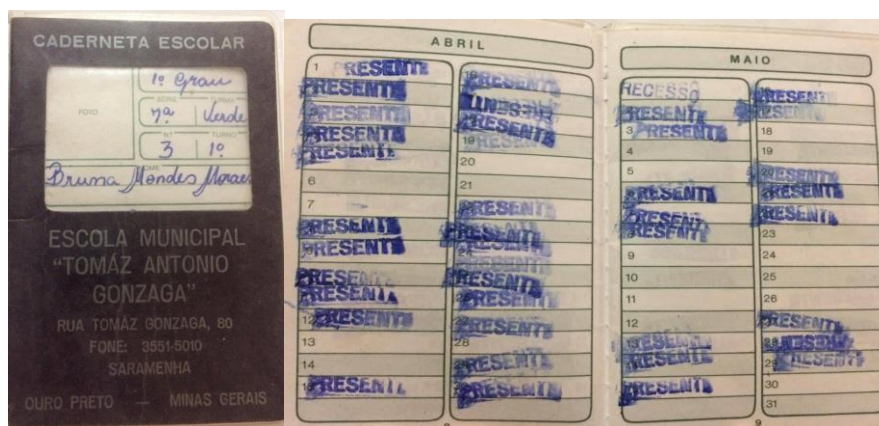 CADERNETA ESCOLAR
1º Grau
FOTO
SÉRIE
TURMA
7ª Verde
Nº
TURNO
3 1º
NOME
Bruna Mendes Moraes
ESCOLA MUNICIPAL
"TOMÁZ ANTONIO
GONZAGA"
RUA TOMÁZ GONZAGA, 80
FONE: 3551-5010
SARAMENHA
OURO PRETO — MINAS GERAIS
ABRIL
1 PRESENTE
PRESENTE
PRESENTE
PRESENTE
PRESENTE
6
7
PRESENTE
PRESENTE
PRESENTE
PRESENTE
12 PRESENTE
13
14
PRESENTE
PRESENTE
PRESENTE
PRESENTE
19 PRESENTE
20
21
PRESENTE
PRESENTE
PRESENTE
PRESENTE
PRESENTE
28
PRESENTE
PRESENTE
8
MAIO
RECESSO
PRESENTE
3 PRESENTE
4
5
PRESENTE
PRESENTE
PRESENTE
9
10
11
12
PRESENTE
PRESENTE
PRESENTE
PRESENTE
PRESENTE
18
19
20 PRESENTE
PRESENTE
PRESENTE
23
24
25
26
PRESENTE
28 PRESENTE
29 PRESENTE
30
31
9